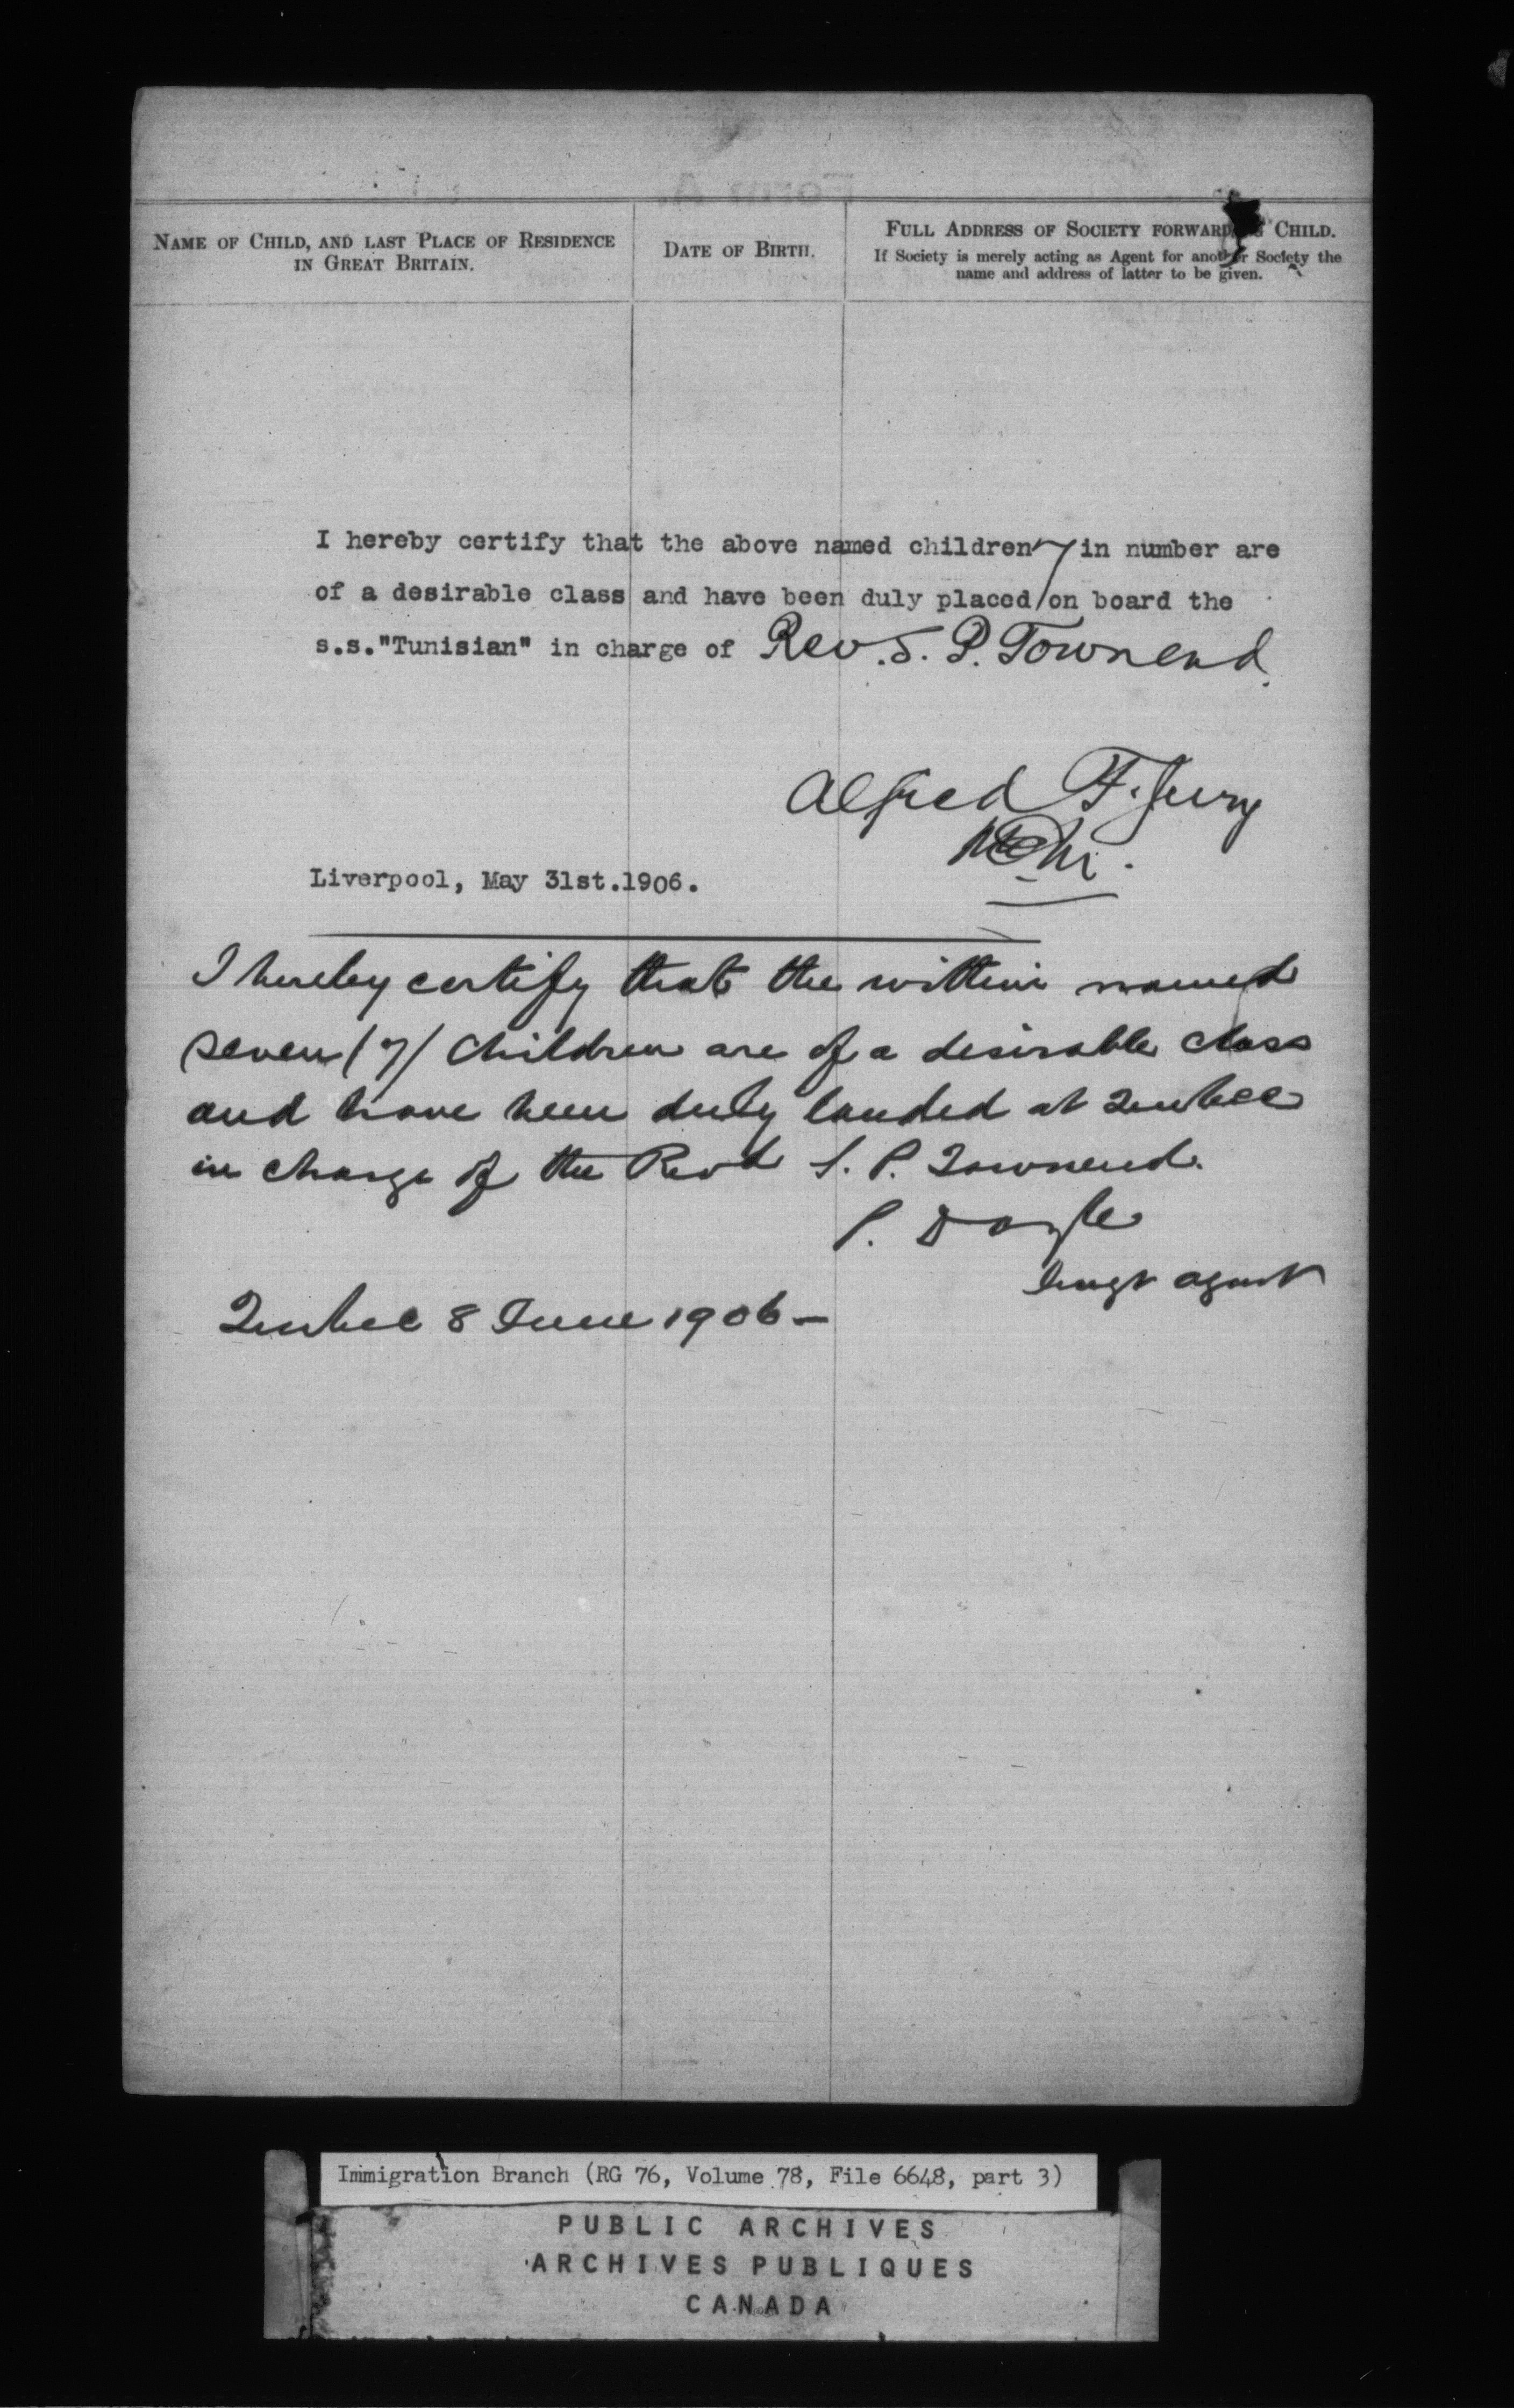 NAME OF CHILD, AND LAST PLACE OF RESIDENCE
IN GREAT BRITAIN.
DATE OF BIRTH.
FULL ADDRESS OF SOCIETY FORWARDING CHILD.
If Society is merely acting as Agent for another Society the
name and address of latter to be given.
I hereby certify that the above named children 7 in number are
of a desirable class and have been duly placed on board the
s.s."Tunisian" in charge of Rev. S. P. Townend.
Alfred F. Jury
Liverpool, May 31st.1906.
I hereby certify that the within named
seven (7) Children are of a desirable class
and have been duly landed at Quebec
in charge of the Revd S. P. Townend.
P. Doyle
Immgt agent
Quebec 8 June 1906 —
Immigration Branch (RG 76, Volume 78, File 6648, part 3)
PUBLIC ARCHIVES
ARCHIVES PUBLIQUES
CANADA